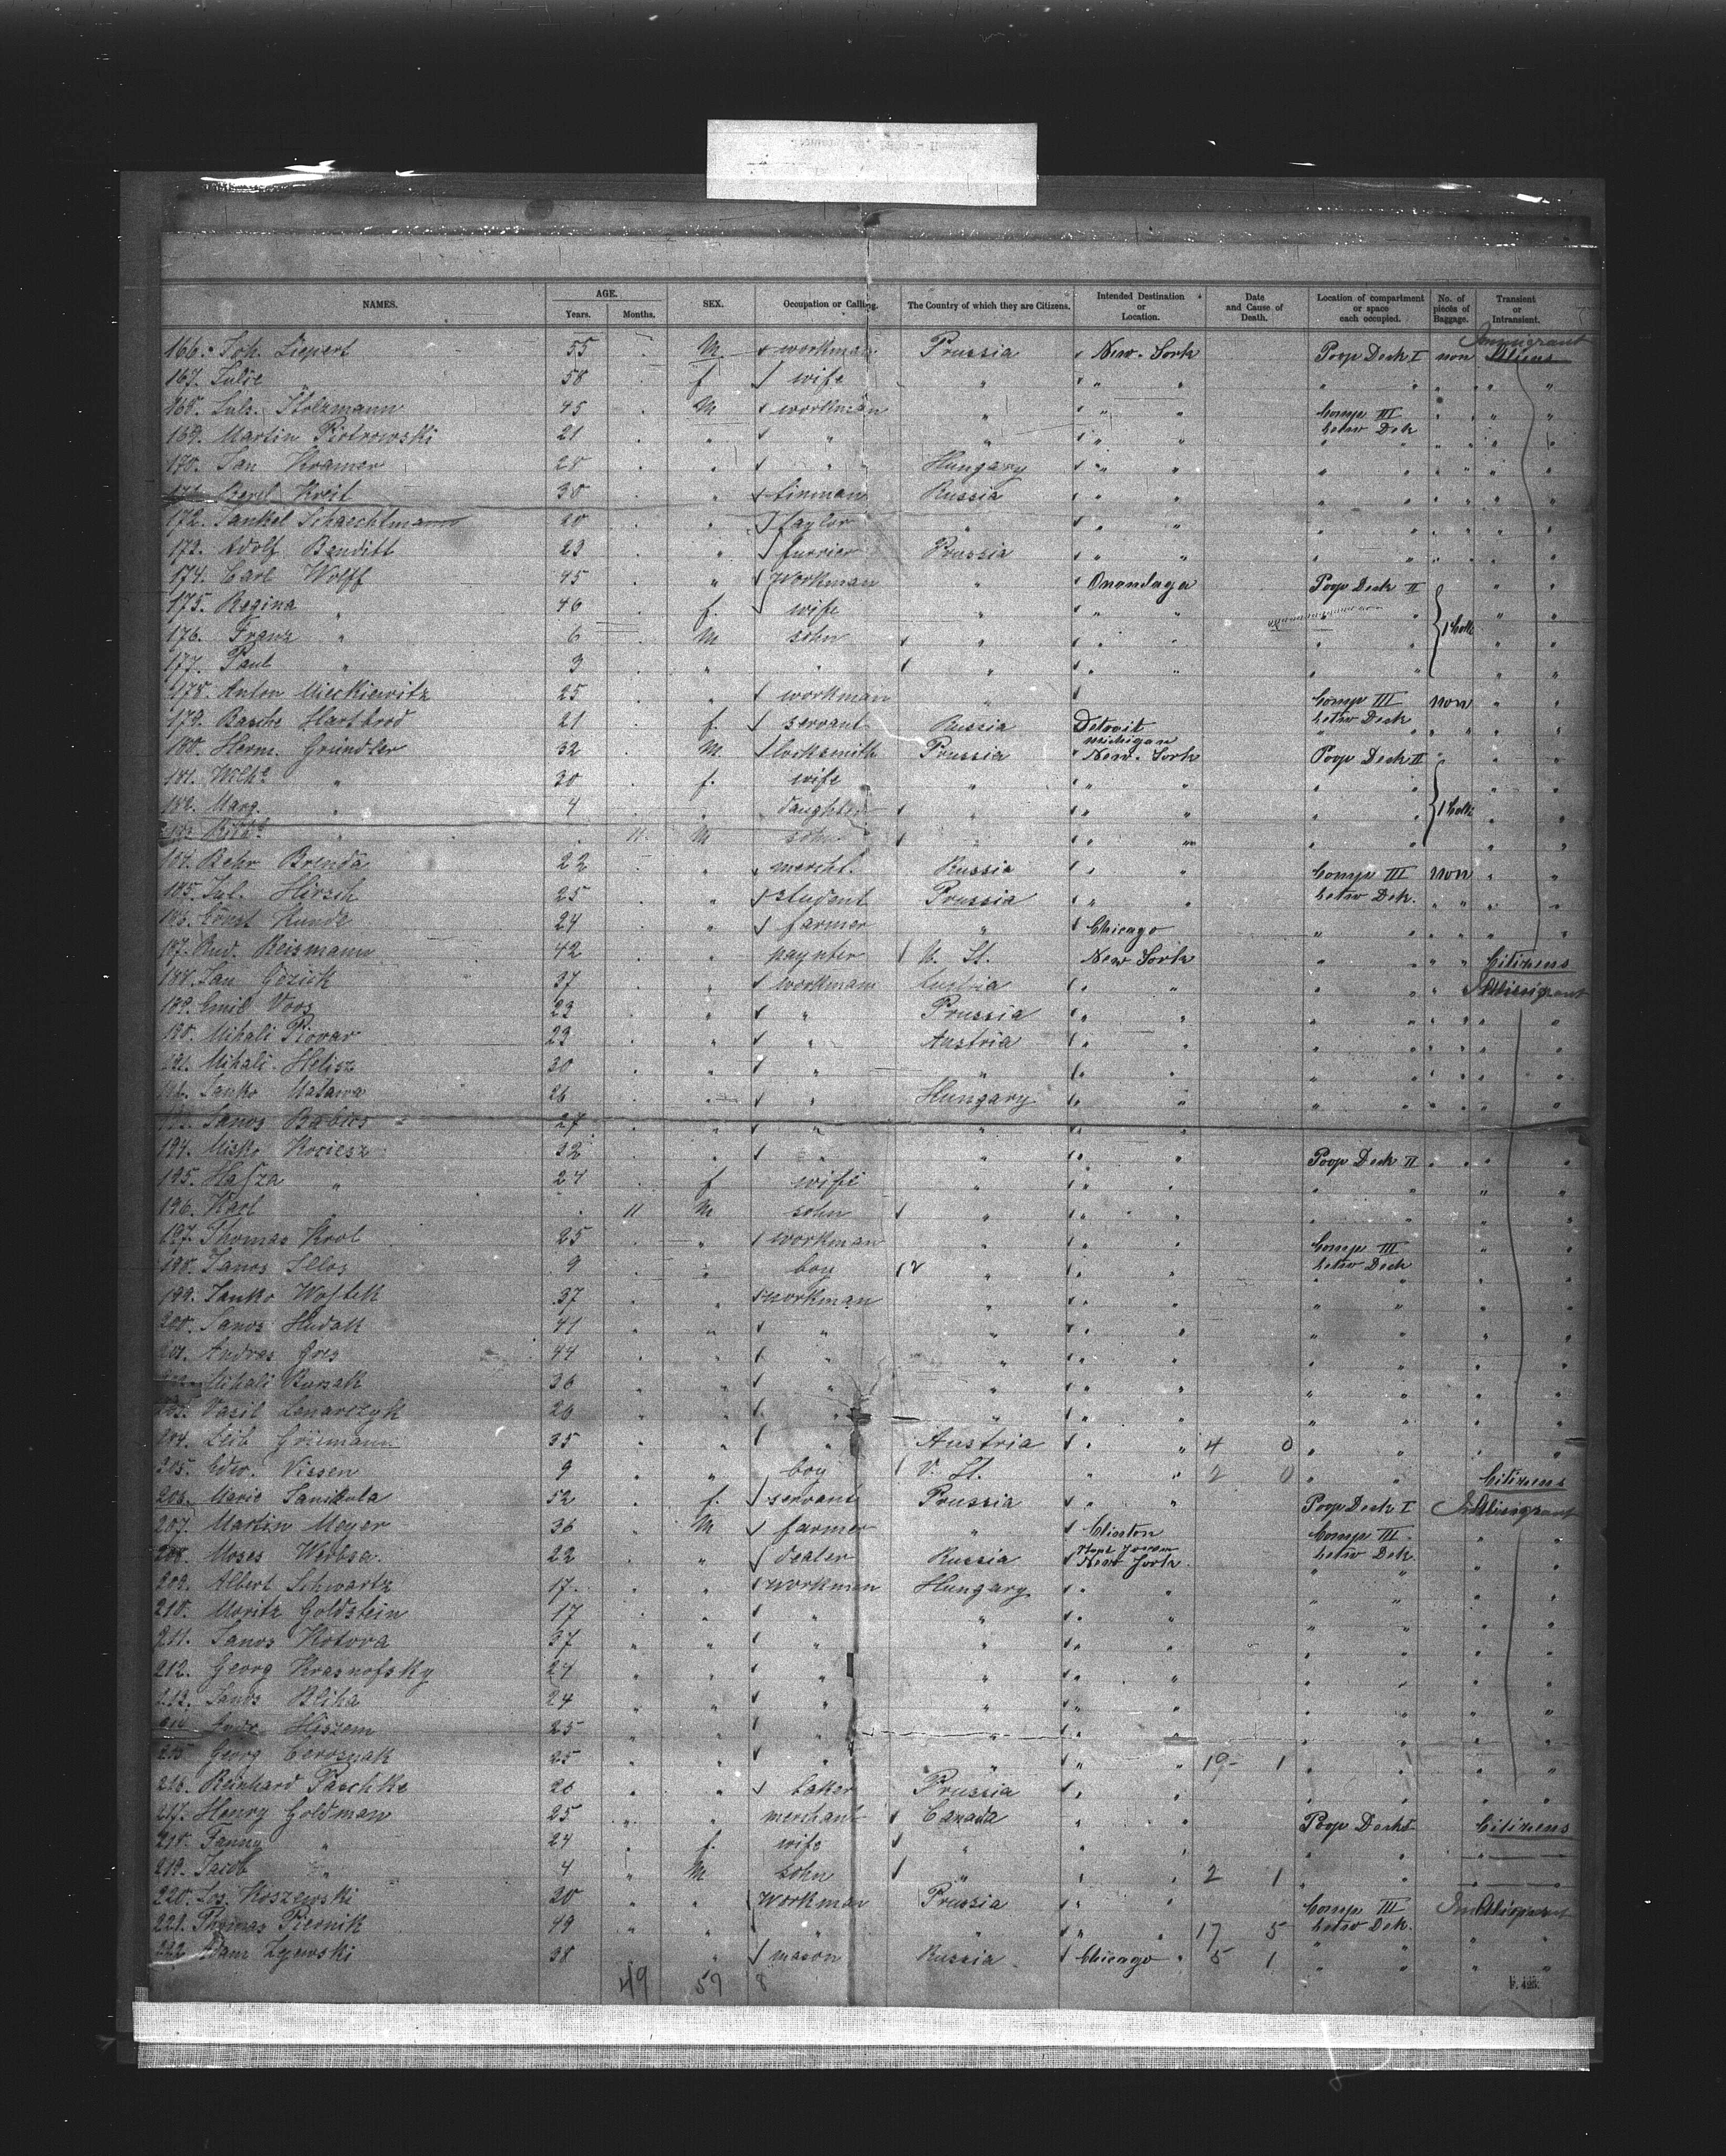 NAMES. AGE. Years. Months. SEX. Occupation or Calling. The Country of which they are Citizens. Intended Destination or Location. Date and Cause of Death. Location of compartment or space each occupied. No. of pieces of Baggage. Transient or Intransient.
166. Joh. Liepert 55 . M workman Prussia New-York Poop Deck I non Immigrant
167. Julie " 58 . f wife " " " " " " " "
168. Juls. Stolzmann 45 . M workman " " " Comp III " " "
169. Martin Piotrowski 21 . " " " " " betw Dek " " "
170. Jan Kramer 28 . " " Hungary " " " " " " " "
171. Berel Kreit 30 . " tinman Russia " " " " " " " "
172. Jankel Schaechtmann 20 . " taylor " " " " " " " " "
173. Adolf Banditt 23 . " furrier Prussia " " " " " " " "
174. Carl Wolff 45 . " workman " Onondaga Poop Deck II " "
175. Regina " 46 . f. wife " " " " " "
176. Franz " 6 . M sohn " " " " " 1 Coll " "
177. Paul " 3 . " " " " " " " " "
178. Anton Mieckiewitz 25 . " workman " Comp III non " "
179. Basche Hartbord 21 . f. servant Russia Detroit Michigan betw Deck " " " "
180. Herm. Gründler 32 . M. locksmith Prussia New-York Poop Deck II " " "
181. Wilhe " 30 . f. wife " " " " " " "
182. Marg. " 4 . " daughter " " " " " 1 Coll " "
183. " . 11. M sohn " " " " " " "
184. Behr Brenda 22 . " mercht. Russia " " Comp III non " "
185. Jul. Hirsch 25 . " student Prussia " " betw Dek. " " " "
186. Ernst Kunde 24 . " farmer " Chicago " " " " " "
187. Rud. Reismann 42 . " paynter U. St. New York " " " " Citizens
188. Jan Gozick 37 . " workman Austria " " " " " " Immigrant
189. Emil Voos 23 . " " Prussia " " " " " " " "
190. Mihali Piovar 23 . " " Austria " " " " " " " "
191. Mihali Helisz 30 . " " " " " " " " " " "
Janko Matawa 26 . " " Hungary " " " " " " " "
Janos Babies 27 . " " " " "
194. Misko Kociesz 32 . " " " " " Poop Deck II " " " "
195. Hasza " 24 . f wife " " " " " " "
196. Karl . 11 M sohn " " " " " " "
197. Thomas Krol 25 . " workman " " " Comp III " "
198. Janos Illos 9 . " boy " " " betw Deck " "
199. Janko Wojtek 37 . " workman " " " " " " "
200. Janos Hudak 41 . " " " " " " " " "
201. Andras Gres 44 . " " " " " " " " "
Mihali Bursak 36 . " " " " " " " " "
203. Vasil Lenarczyk 20 . " " " " " " " " "
204. Leib Griemann 35 . " " Austria " " 4 0 " " " "
205. Edw. Vissen 9 . " boy U. St. " " 2 0 " " Citizens
206. Marie Sanikula 52 . f. servant Prussia " " Poop Deck I Immigrant
207. Martin Meyer 36 . M farmer " Clinton Comp III " "
208. Moses Werbsa. 22 . " dealer Russia New York betw Dek. " "
209. Albert Schwartz 17. . " workman Hungary " " " " " "
210. Moritz Goldstein 17 . " " " " " " " " "
211. Janos Kotora 37 " " " " " " " " " "
212. Georg Krasnofsky 24 " " " " " " " " " "
213. Janos Bliha 24 " " " " " " " " " "
Andr. Hiszem 25 " " " " " " " " " "
215. Georg Cerosnak 25 " " " " " " 19- 1 " " " "
216. Reinhard Paschke 20 " " baker Prussia " " " " " "
217. Henry Goldman 25 " " merchant Canada " " Poop Deck I Citizens
218. Fanny " 24 " f. wife " " " " " " "
219. Jacob " 4 " M sohn " " " 2 1 " " "
220. Jos. Koszewski 20 " " workman Prussia " " Comp III Immigrant
221. Thomas Piernik 49 " " " " " " 17 5 betw Dek. " "
222. Adam Zyewski 38 " mason Russia Chicago 5 1 " " " "
49 59 8